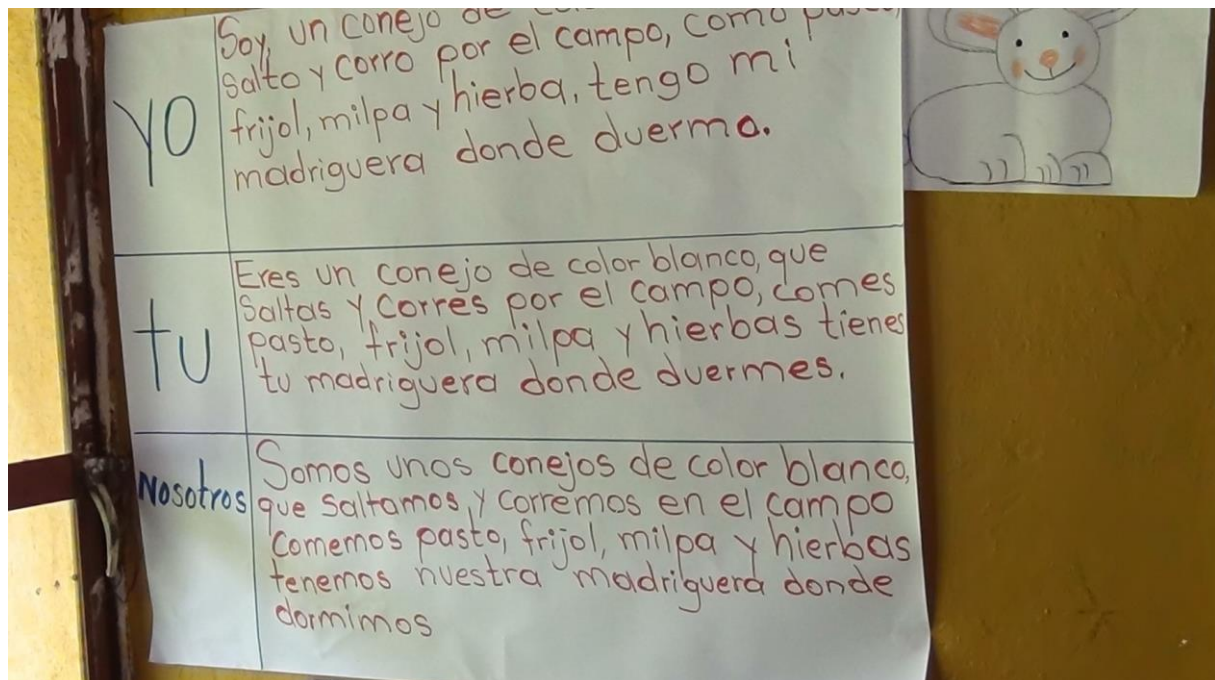 Soy, un conejo de
salto y corro por el campo, como
YO
frijol, milpa y hierba, tengo mi
madriguera donde duermo.
Eres un conejo de color blanco, que
saltas y corres por el campo, comes
tu
pasto, frijol, milpa y hierbas tienes
tu madriguera donde duermes.
Somos unos conejos de color blanco,
Nosotros
que saltamos, y corremos en el campo
comemos pasto, frijol, milpa y hierbas
tenemos nuestra madriguera donde
dormimos